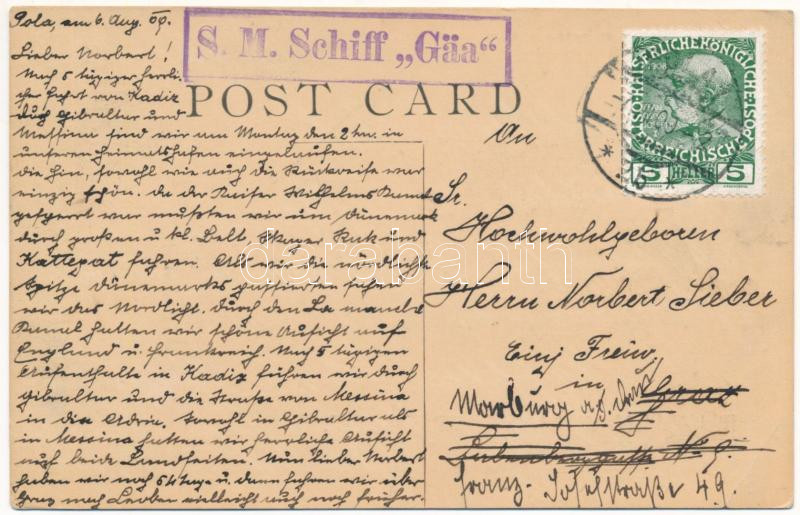 Pola, am 6. Aug. 09.
S. M. Schiff „Gäa“
POST CARD
Lieber Norbert!
Nach 5 tägiger herrli-
cher Fahrt von Kadiz
durch Gibraltur und
Messina sind wir am Montag den 2ten. in
unseren Heimatshafen eingelaufen.
Die Hin, sowohl wie auch die Rückreise war
einzig schön. Da der Kaiser Wilhelms Kanal
gesperrt war mußten wir um Dänemark
durch großen u. kl. Belt, Skager Rak und
Kattegat fahren. Als wir die nördlichste
Spitze Dänemarks passierten sahen
wir das Nordlicht. Durch den La manche
Kanal hatten wir schöne Aussicht auf
England u. Frankreich. Nach 5 tägigen
Aufenthalte in Kadiz fuhren wir durch
Gibraltur und die Straße von Messina
in die Adria. Sowohl in Gibraltur als
in Messina hatten wir herrliche Aussicht
auf beide Landseiten. Nun lieber Norbert
haben wir noch 54 Tage u. dann fahren wir über
Graz nach Leoben vielleicht auch noch früher.
An
Sr.
Hochwohlgeboren
Herrn Norbert Sieber
Einj Freiw.
in
Marburg a/d. Drau Graz
No 9.
Franz- Josefstraße 49.
KAISERLICHEKÖNIGLICHE
ÖSTERREICHISCHE POST
5 HELLER 5
darabanth